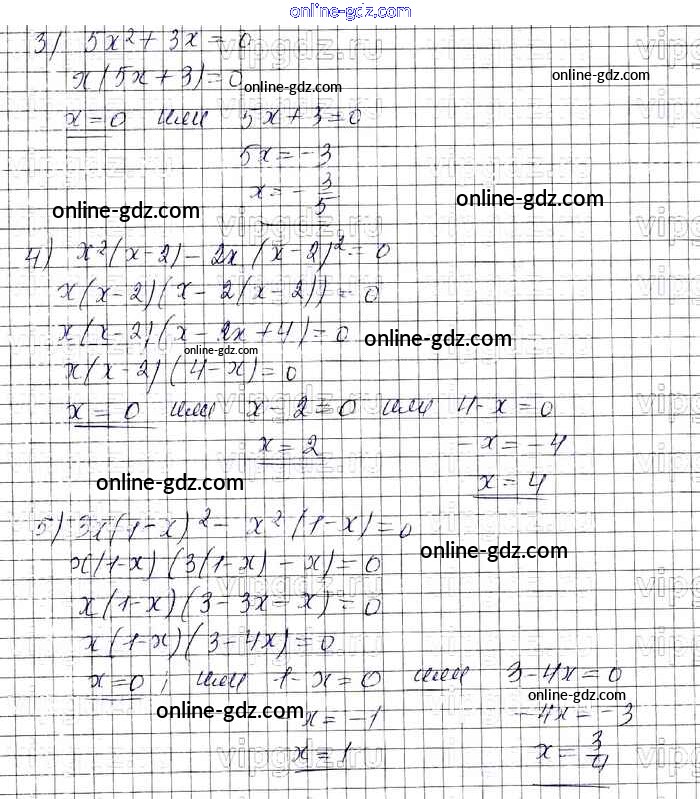 online-gdz.com
3) 5x² + 3x = 0
x(5x + 3) = 0
online-gdz.com
online-gdz.com
x = 0 или 5x + 3 = 0
5x = -3
x = - 3/5
online-gdz.com
online-gdz.com
4) x²(x - 2) - 2x (x - 2)² = 0
x(x - 2)(x - 2(x - 2)) = 0
x(x - 2)(x - 2x + 4) = 0
online-gdz.com
online-gdz.com
x(x - 2)(4 - x) = 0
x = 0 или x - 2 = 0 или 4 - x = 0
x = 2 -x = -4
online-gdz.com
x = 4
5) 3x(1 - x)² - x²(1 - x) = 0
online-gdz.com
x(1 - x)(3(1 - x) - x) = 0
x(1 - x)(3 - 3x - x) = 0
x(1 - x)(3 - 4x) = 0
x = 0; или 1 - x = 0 или 3 - 4x = 0
online-gdz.com
online-gdz.com
-x = -1 -4x = -3
x = 1 x = 3/4